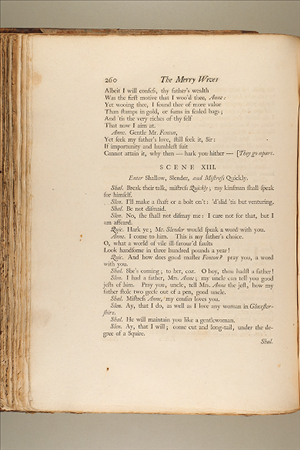 260 The Merry Wives
Albeit I will confess, thy father's wealth
Was the first motive that I woo'd thee, Anne:
Yet wooing thee, I found thee of more value
Than stamps in gold, or sums in sealed bags;
And 'tis the very riches of thy self
That now I aim at.
Anne. Gentle Mr. Fenton,
Yet seek my father's love, still seek it, Sir:
If importunity and humblest suit
Cannot attain it, why then — hark you hither — [They go apart.
SCENE XIII.
Enter Shallow, Slender, and Mistress Quickly.
Shal. Break their talk, mistress Quickly; my kinsman shall speak
for himself.
Slen. I'll make a shaft or a bolt on't: 'd'slid 'tis but venturing.
Shal. Be not dismaid.
Slen. No, she shall not dismay me: I care not for that, but I
am affeard.
Quic. Hark ye; Mr. Slender would speak a word with you.
Anne. I come to him. This is my father's choice.
O, what a world of vile ill-favour'd faults
Look handsome in three hundred pounds a year!
Quic. And how does good master Fenton? pray you, a word
with you.
Shal. She's coming; to her, coz. O boy, thou hadst a father!
Slen. I had a father, Mrs. Anne; my uncle can tell you good
jests of him. Pray you, uncle, tell Mrs. Anne the jest, how my
father stole two geese out of a pen, good uncle.
Shal. Mistress Anne, my cousin loves you.
Slen. Ay, that I do, as well as I love any woman in Glocester-
shire.
Shal. He will maintain you like a gentlewoman.
Slen. Ay, that I will; come cut and long-tail, under the de-
gree of a Squire.
Shal.